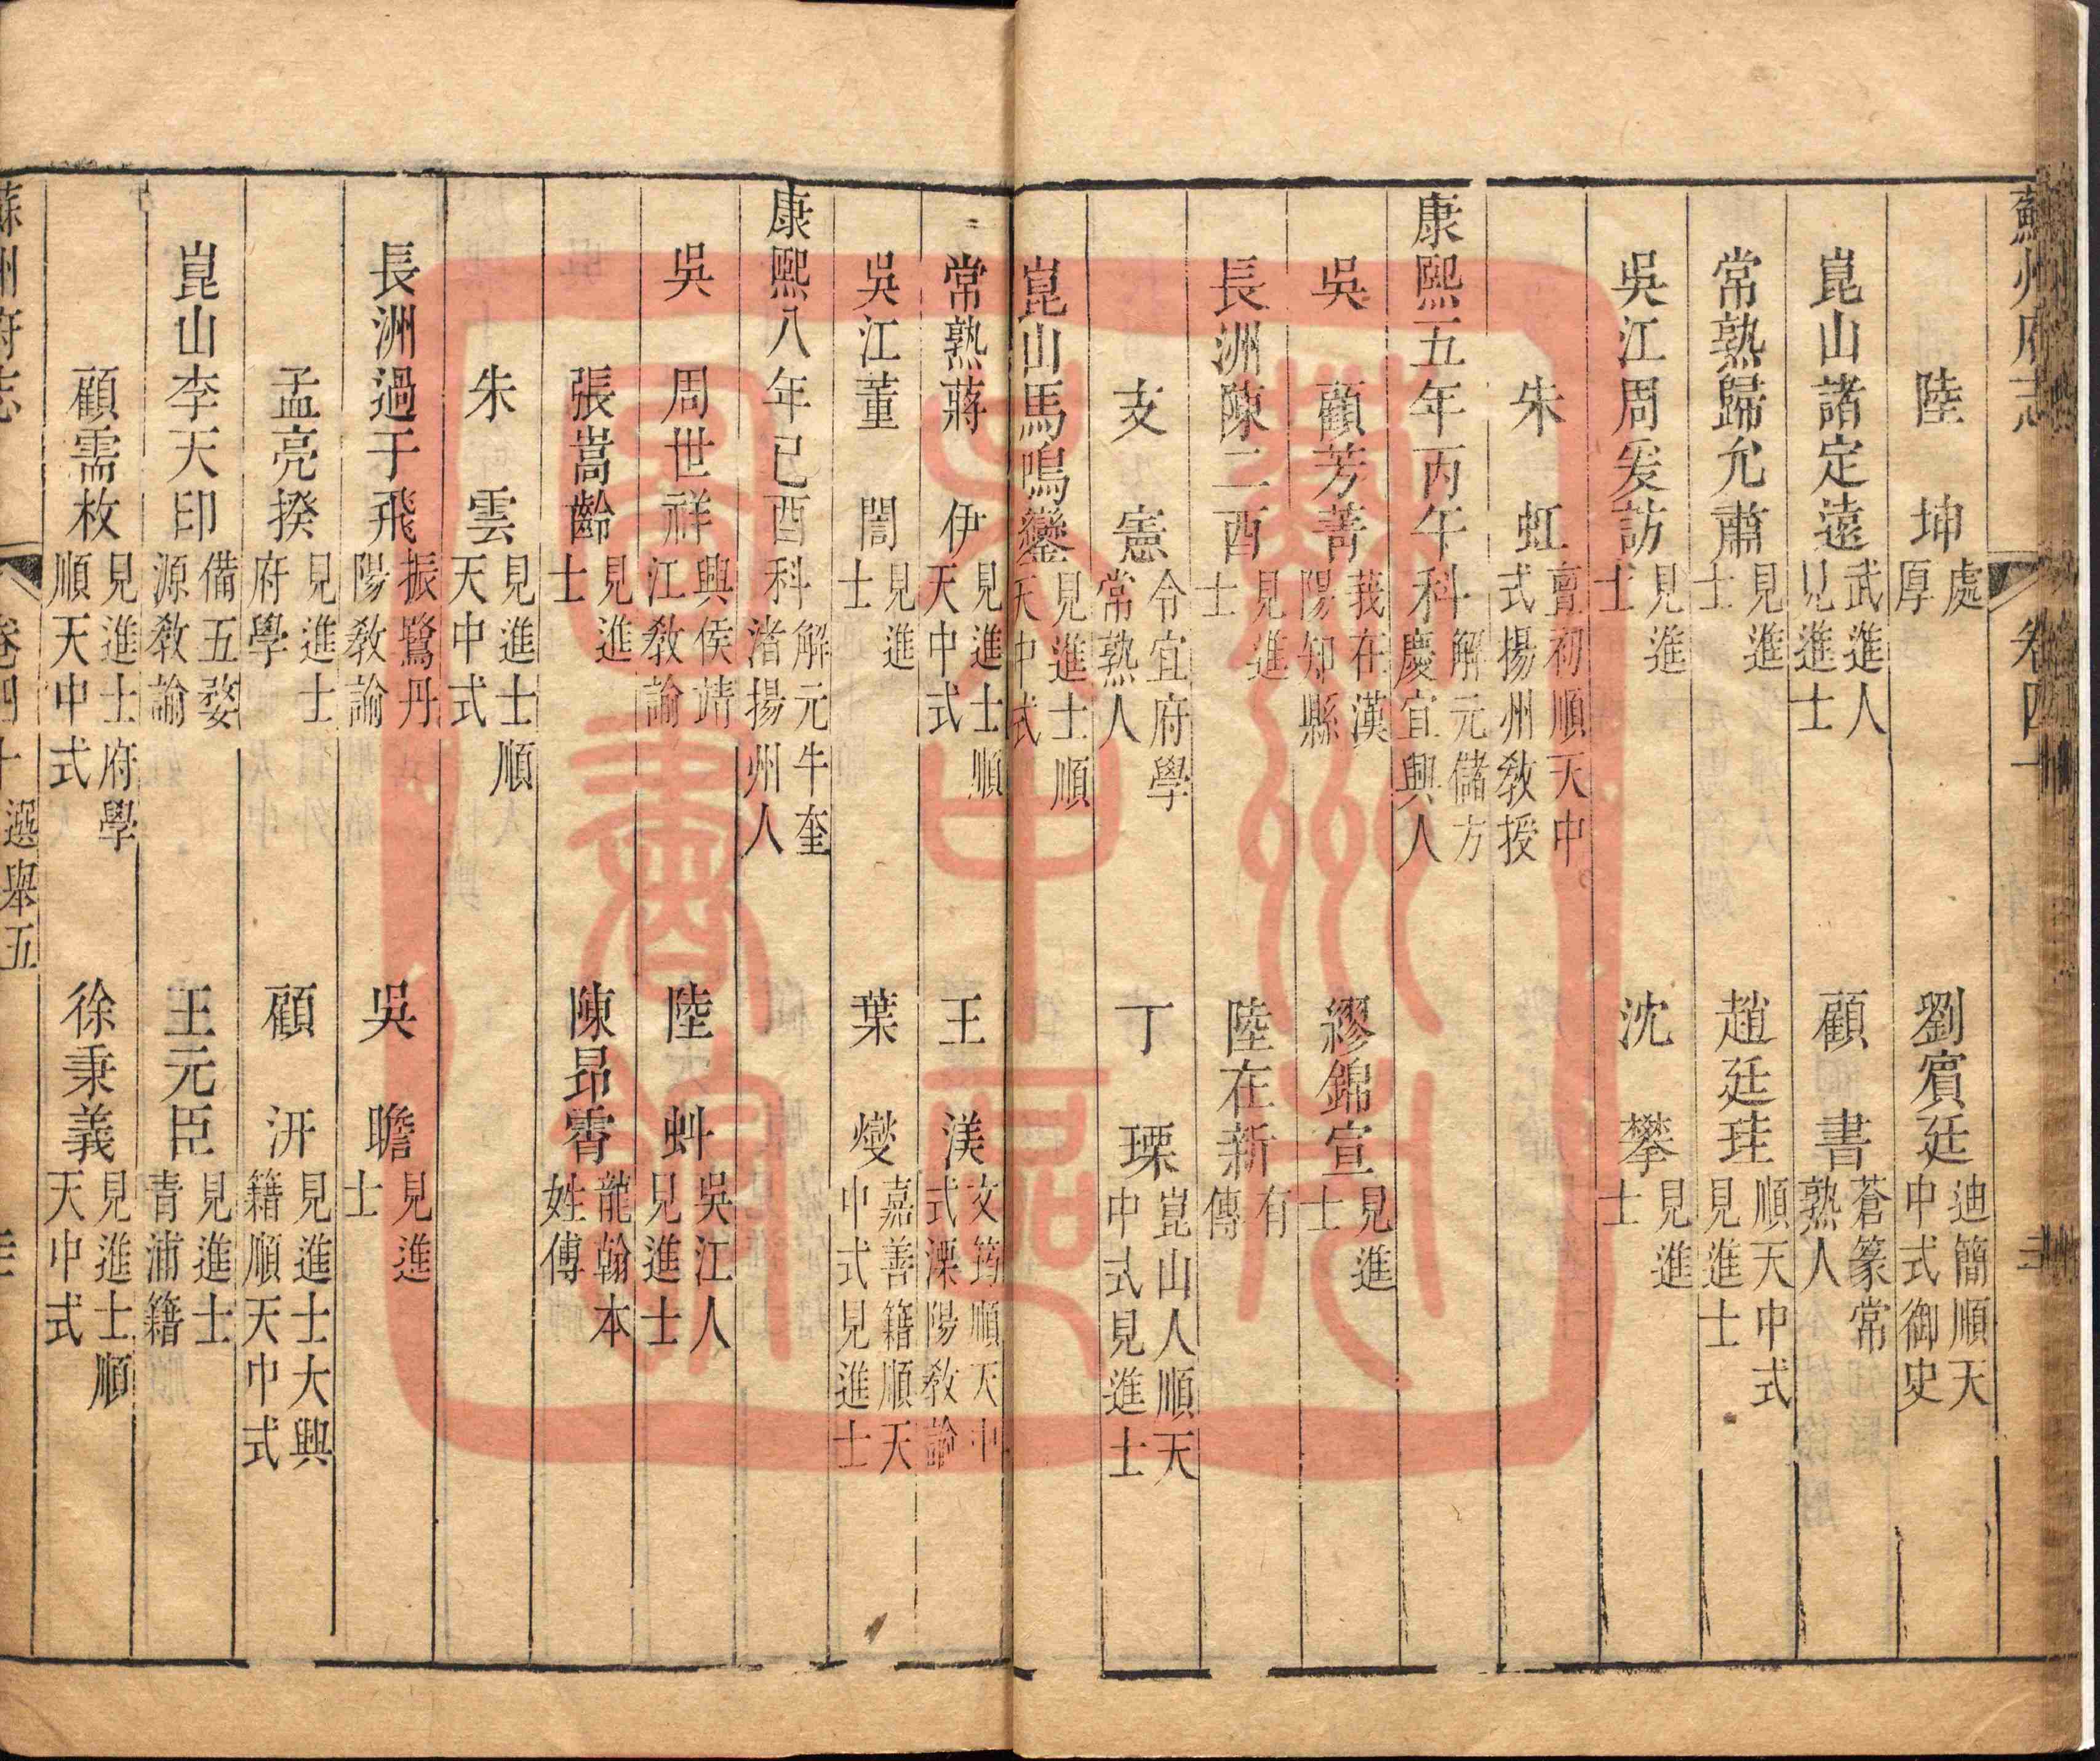 蘇州府志 卷四十
陸坤 處厚 劉賓廷 迪簡順天中式御史
崑山諸定遠 武進人見進士 顧書 蒼篆常熟人
常熟歸允肅 見進士 趙廷珪 順天中式見進士
吳江周爰訪 見進士 沈攀 見進士
朱虹 亶初順天中式揚州教授
康熙五年丙午科 解元儲方慶宜興人
吳 顧芳菁 莪在漢陽知縣 繆錦宣 見進士
長洲陳二酉 見進士 陸在新 有傳
支憲 令宜府學常熟人 丁瑮 崑山人順天中式見進士
崑山馬鳴鑾 見進士順天中式
常熟蔣伊 見進士順天中式 王渼 文筠順天中式溧陽教諭
吳江董誾 見進士 葉燮 嘉善籍順天中式見進士
康熙八年己酉科 解元牛奎渚揚州人
吳 周世祥 興侯靖江教諭 陸虯 吳江人見進士
張嵩齡 見進士 陳昂霄 龍翰本姓傅
朱雲 見進士順天中式
長洲過于飛 振鷺丹陽教諭 吳瞻 見進士
孟亮揆 見進士府學 顧汧 見進士大興籍順天中式
崑山李天印 備五婺源教諭 王元臣 見進士青浦籍
顧需枚 見進士府學順天中式 徐秉義 見進士順天中式
蘇州府志 卷四十 選舉五
蘇州市中區圖書館